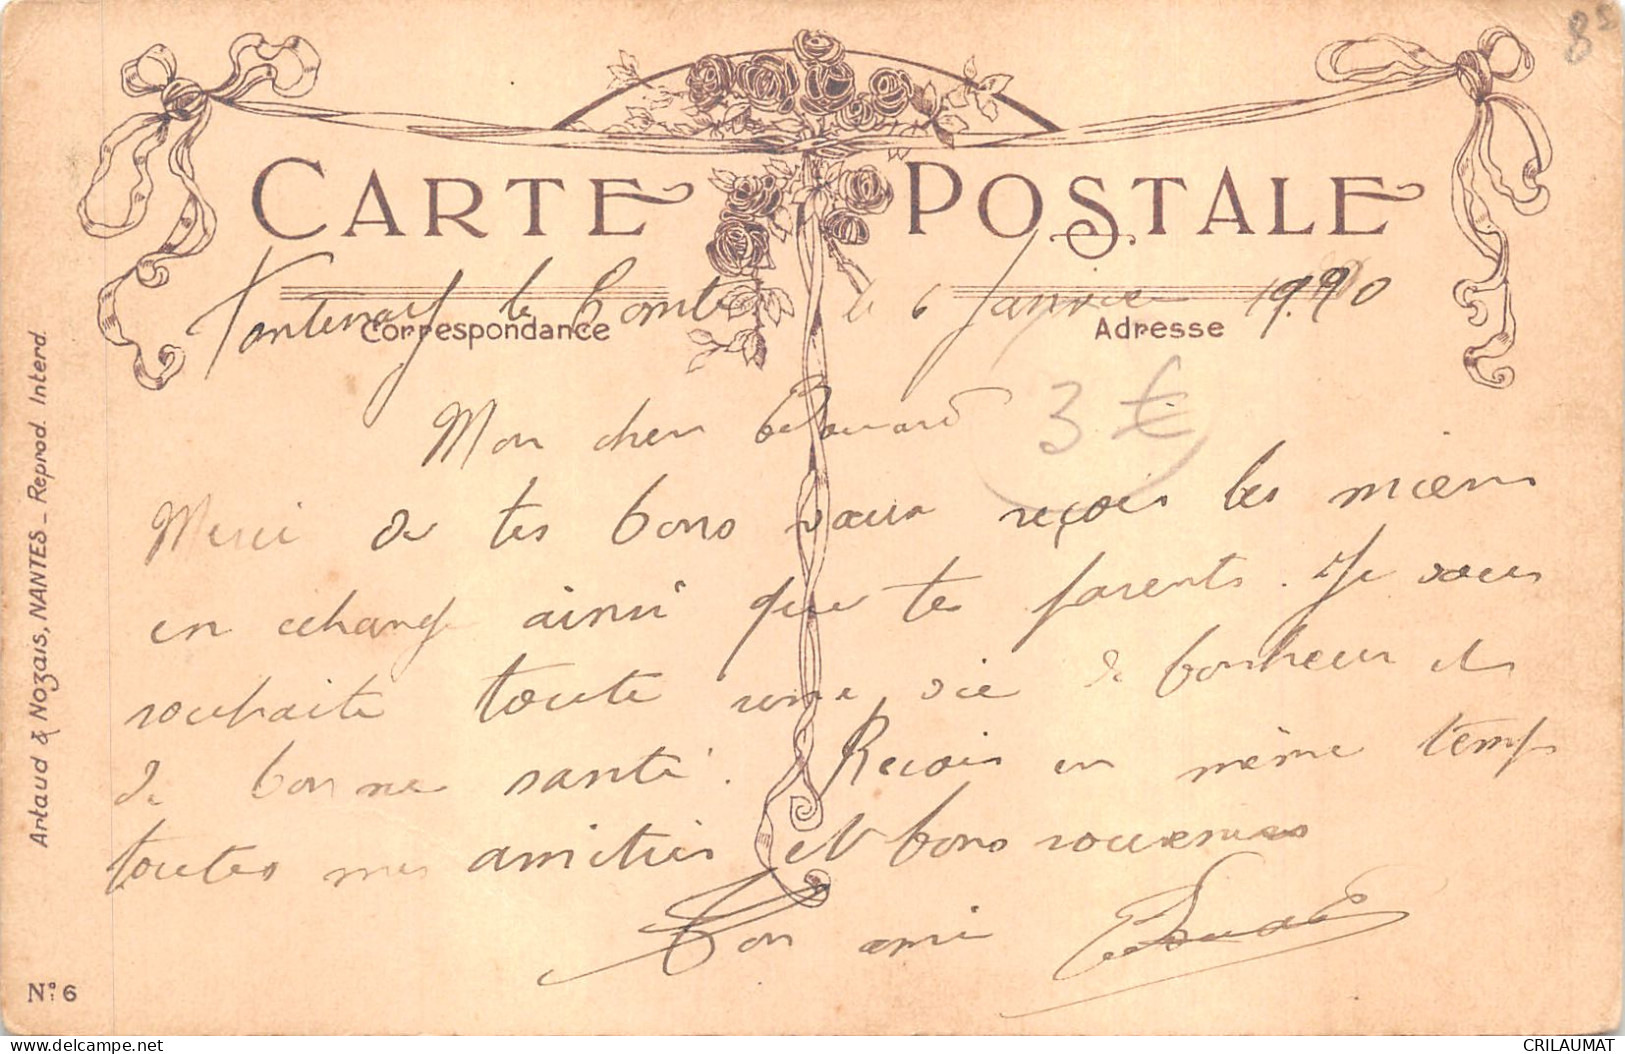 8⁵
CARTE POSTALE
Fontenay le Comte le 6 Janvier 1920
Correspondance
Adresse
3 €
Mon cher Edouard
Merci de tes bons vœux reçois les miens
en echange ainsi que tes parents. Je vous
souhaite toute une vie de bonheur et
de bonne santé. Recois en même temps
toutes mes amitiés et bons souvenirs
Ton ami
Artaud & Nozais, NANTES _ Reprod. Interd.
Nº: 6
CRILAUMAT